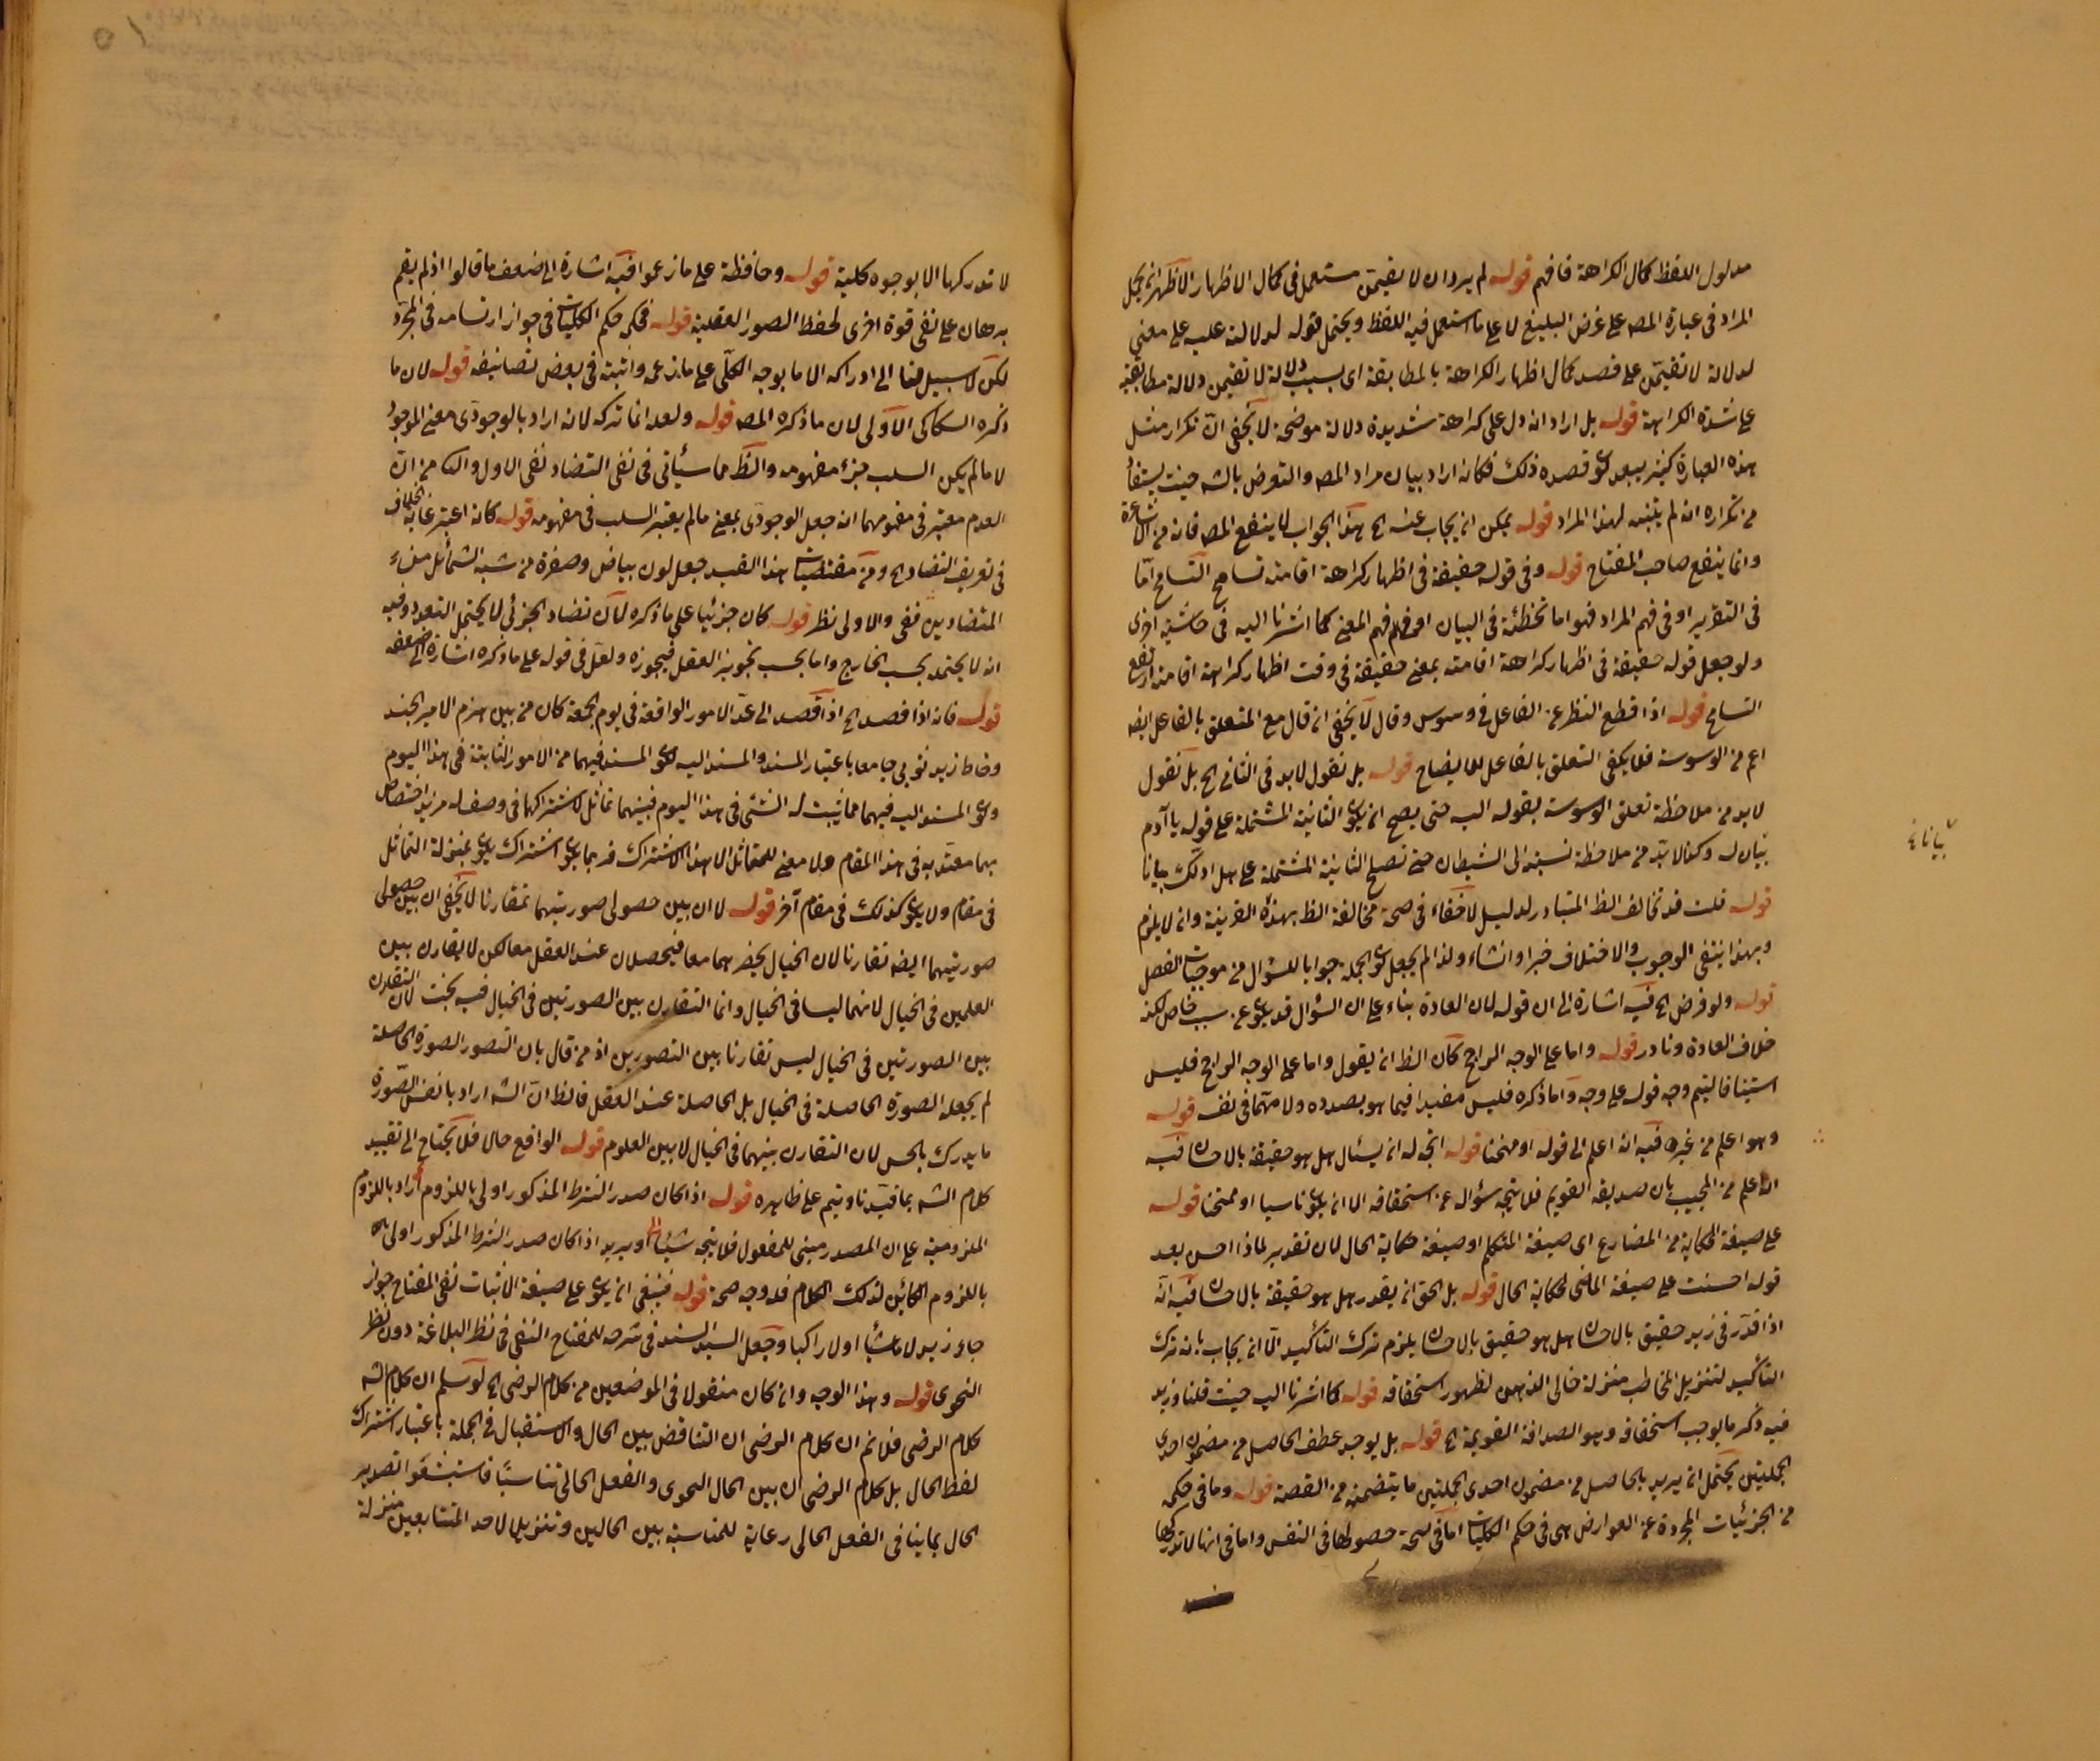 مدلول اللفظ كمال الكراهة فافهم قوله لم يرد ان لا تقيمن مستعمل في كمال الاظهار الاظهر انه يحمل
المراد في عبارة المص على غرض البليغ لا على ما استعمل فيه اللفظ ويحتمل قوله لدلالته عليه على معنى
لدلالة لا تقيمن على قصد كمال اظهار الكراهة بالمطابقة اى بسبب دلالة لا تقيمن دلالة مطابقية
على شدة الكراهة قوله بل اراد انه دل على كراهة شديدة دلالة موضحة لا يخفى ان تكرار مثل
هذه العبارة كثير يبعد قصده ذلك فكانه اراد بيان مراد المص والتعرض بالشه حيث يستفاد
من تكراره انه لم يتنبه لهذا المراد قوله يمكن ان يجاب عنه الخ هذا الجواب لا ينفع المص فانه من الاشاعرة
وانما ينفع صاحب المفتاح قوله وفي قوله حقيقة في اظهار كراهة اقامته تسامح التسامح اما
في التقرير او في فهم المراد فهو اما تخطئة في البيان او في فهم المعنى كما اشرنا اليه في حاشية اخرى
ولو جعل قوله حقيقة في اظهار كراهة اقامته بمعنى حقيقة في وقت اظهار كراهة اقامته اندفع
التسامح قوله اذا قطع النظر عن الفاعل في وسوس وقال لا يخفى ان قال مع المتعلق بالفاعل ايضه
اعم من الوسوسة فلا يكفى التعلق بالفاعل للايضاح قوله بل نقول لابد في الثانى الخ بل نقول
لابد من ملاحظة تعلق الوسوسة بقوله اليه حتى يصح ان يكون الثانية المشتملة على قوله يا آدم
بيان له وكذا لابد من ملاحظة نسبته الى الشيطان حتى تصلح الثانية المشتملة على هل ادلك بيانا
بيانا نخ
قوله قلت قد تخالف الظ المتبادر لدليل لا خفاء في صحة مخالفة الظ بهذه القرينة وانه لا يلزم
وبهذا ينتفى الوجوب والاختلاف خبرا وانشاء ولذا لم يجعل كون الجملة جوابا للسؤال من موجبات الفصل
قوله ولو فرض الخ فيه اشارة الى ان قوله لان العادة بناء على ان السؤال قد يكون عن سبب خاص لكنه
خلاف العادة ونادر قوله واما على الوجه الراجح كان الظ ان يقول واما على الوجه الراجح فليس
استينافا ليتم وجه قوله على وجه واما ذكره فليس مفيدا فيما هو بصدده ولا متما في نفسه قوله
وهو اعلم من غيره فيه انه اعلم الى قوله او ممتحنا قوله اتجه له ان يسئال هل هو حقيقة بالاحسان فيه
انه اعلم من المجيب بان صديقه القديم فلا يتجه سؤاله عن استحقاقه الا ان يكون ناسيا او ممتحنا قوله
على صيغة الحكاية من المضارع اى صيغة المتكلم او صيغة حكاية الحال لان تقدير لماذا احسن بعد
قوله احسنت على صيغة الماضى لحكاية الحال قوله بل الحق ان يقدر هل هو حقيقة بالاحسان فيه انه
اذا قدر في زيد حقيق بالاحسان هل هو حقيق بالاحسان يلزم ترك التأكيد الا ان يجاب بانه ترك
التأكيد لتنزيل المخاطب منزلة خالى الذهن لظهور استحقاقه قوله كما اشرنا اليه حيث قلنا وزيد
فيه ذكر ما يوجب استحقاقه وهو الصداقة القديمة الخ قوله بل يوجد عطف الحاصل من مضمون احدى
الجملتين يحتمل ان يريد بالحاصل من مضمون احدى الجملتين ما يتضمنه من القصة قوله وما في حكمه
من الجزئيات المجردة عن العوارض هى في حكم الكليات اما في صحة حصولها في النفس واما في انها لا تدركها
٥١
لا تدركها الا بوجوه كلية قوله وحافظة على ما زعموا فيه اشارة الى ضعف ما قالوا اذ لم يقم
برهان على نفى قوة اخرى لحفظ الصور العقلية قوله في حكم الكليات في جواز ارتسامه في المجرد
لكن لا سبيل لنا الى ادراكه الا ما بوجه الكلى على ما زعمه واثبته في بعض تصانيفه قوله لان ما
ذكره السكاكى الاولى لان ما ذكره المص قوله ولعله انما تركه لانه اراد بالوجودى معنى الموجود
لا ما لم يكن السلب جزء مفهومه والنظر مما سيأتى في نفى التضاد نفى الاول والثانى من ان
العدم معتبر في مفهومهما انه جعل الوجودى بمعنى ما لم يعتبر السلب في مفهومه قوله كانه اعتبر غاية الخلاف
في تعريف التضاد الخ ومن مقتضيات هذا القيد جعل لون بياض وصفرة من شبه التماثل منشاء
المتضادين ففى والاولى نظر قوله كان جزئيا على ما ذكره لان تضاد الجزئى لا يحتمل التعدد وفيه
انه لا يحتمله بحسب الخارج واما بحسب تجويز العقل فيجوزه ولعل في قوله على ما ذكره اشارة الى ضعفه
قوله فانه اذا قصد الخ اذا قصد الى عد الامور الواقعة في يوم الجمعة كان من بين هزم الامير الجند
وخاط زيد ثوبى جامعا باعتبار المسند والمسند اليه لكون المسند فيهما من الامور الثابتة في هذا اليوم
وكون المسند اليه فيهما مما يثبت له الشئ في هذا اليوم فبينهما تماثل لاشتراكهما في وصف له مزيد اختصاص
بهما معتد به في هذا المقام ولا معنى للتماثل الا هذا الاشتراك فربما يكون اشتراك يكون بمنزلة التماثل
في مقام ولا يكون كذلك في مقام آخر قوله لا ان بين حصولى صورتيهما تقارنا لا يخفى ان بين حصولى
صورتيهما ايضه تقارنا لان الخيال يحضرهما معا فيحصلان عند العقل معا لكن لا تقارن بين
العلمين في الخيال لانهما ليسا في الخيال وانما التقارن بين الصورتين في الخيال فيه بحث لان التقارن
بين الصورتين في الخيال ليس تقارنا بين التصورين اذ من قال بان التصور الصورة الحاصلة
لم يجعله الصورة الحاصلة في الخيال بل الحاصلة عند العقل فالظ ان الشه اراد بانفس الصورة
ما يدرك بالحس لان التقارن بينهما في الخيال لا بين العلوم قوله الواقع حالا فلا يحتاج الى تقييد
كلام الشه بما قيدنا ويتم على ظاهره قوله اذا كان صدر الشرط المذكور اولى باللزوم اراد باللزوم
الملزومية على ان المصدر مبنى للمفعول فلا يتجه شئ او يريد اذا كان صدر الشرط المذكور اولى
باللزوم الكائن لذلك الكلام فله وجه صحة قوله فينبغى ان يكون على صيغة الاثبات نفى المفتاح جواز
جاء زيد لا ماشيا او لا راكبا وجعل السيد السند في شرحه للمفتاح النفى في نظر البلاغة دون نظر
النحوى قوله وهذا الوجه وان كان منقولا في الموضعين من كلام الرضى الخ لو سلم ان كلام الشه
كلام الرضى فلانم ان كلام الرضى ان التناقض بين الحال والاستقبال في الجملة باعتبار اشتراك
لفظ الحال بل كلام الرضى ان بين الحال النحوى والفعل الحالى تناسبا فاستبشعوا تصدير
الحال بما ينافى الفعل الحالى رعاية للمناسبة بين الحالين وتنزيلا لاحد المتشابهين منزلة